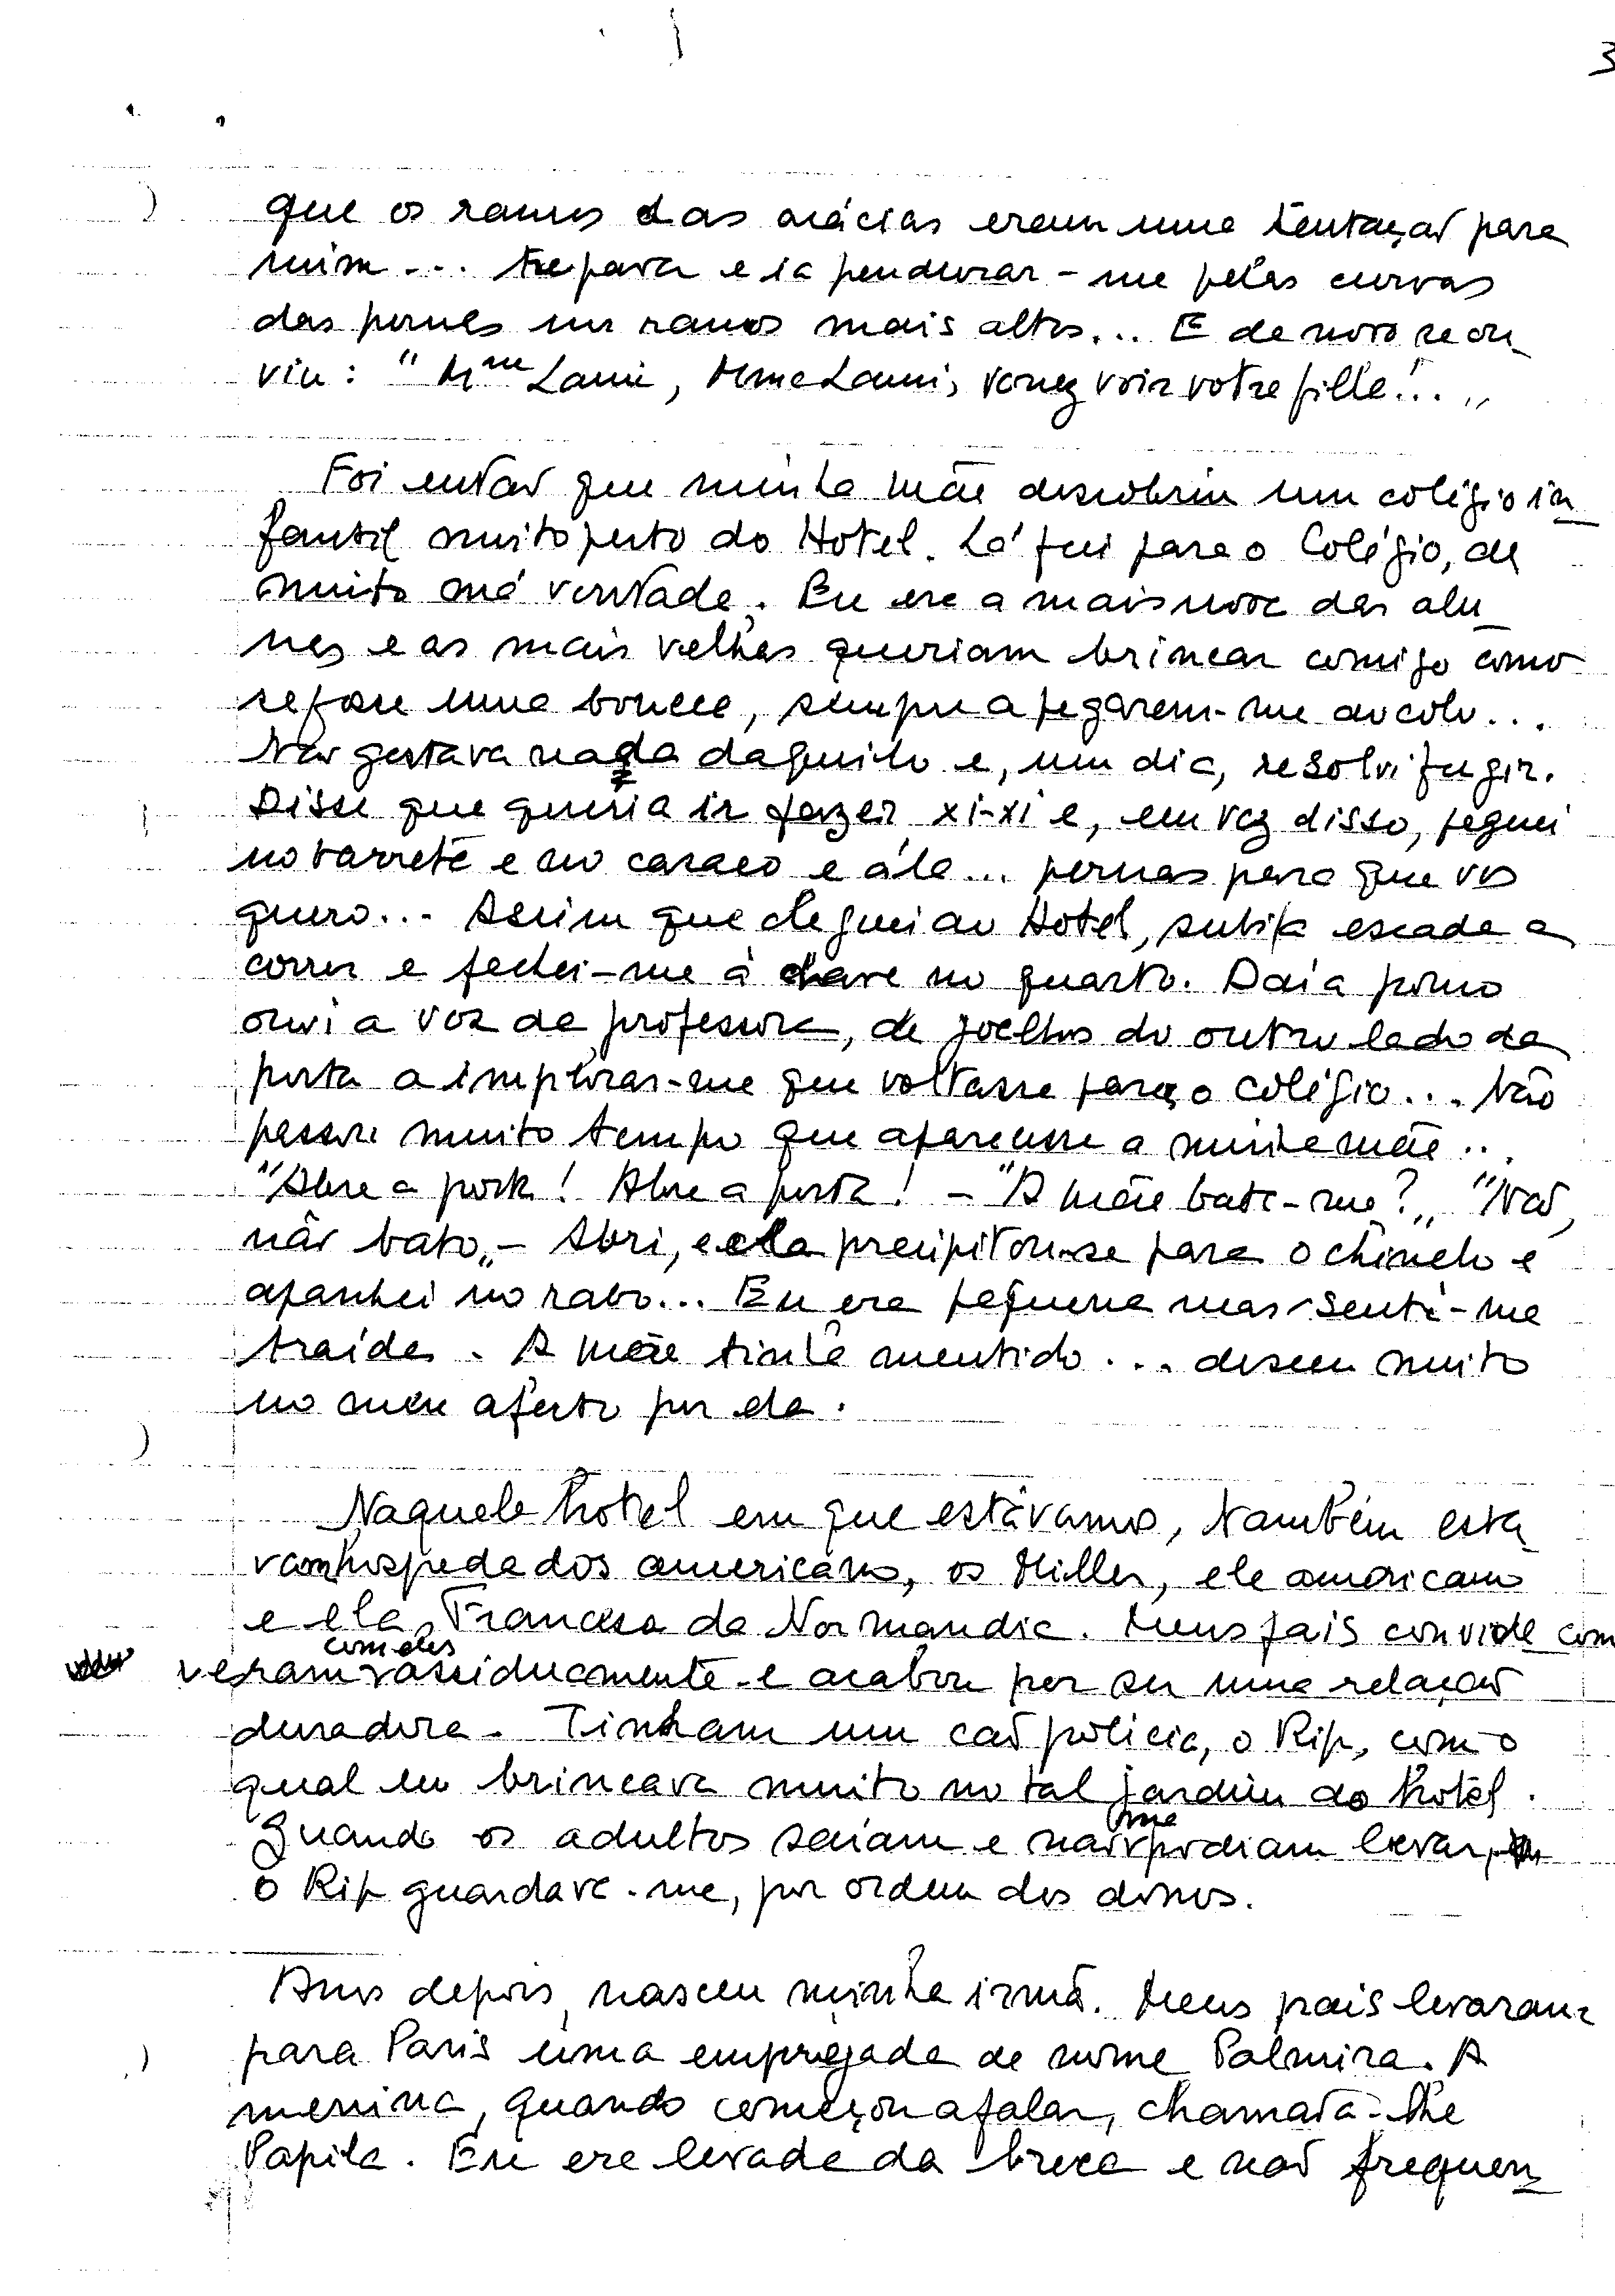 3
que os ramos das acácias eram uma tentação para
mim... Trepava e ia pendurar-me pelas curvas
das pernas nos ramos mais altos... E de novo se ou_
viu: "Mme Lami, Mme Lami, venez voir votre fille!..."
Foi então que minha mãe descobriu um colégio in_
fantil muito perto do Hotel. Lá fui para o Colégio, de
muito má vontade. Eu era a mais nova das alu_
nas e as mais velhas queriam brincar comigo como
se fosse uma boneca, sempre a pegarem-me ao colo...
Não gostava nada daquilo e, um dia, resolvi fugir.
Disse que queria ir fazer xi-xi e, em vez disso, peguei
no barrete e no casaco e ála... pernas para que vos
quero... Assim que cheguei ao Hotel, subi a escada a
correr e fechei-me à chave no quarto. Daí a pouco
ouvi a voz da professora, de joelhos do outro lado da
porta a implorar-me que voltasse para o colégio... Não
passou muito tempo que aparecesse a minha mãe...
"Abre a porta! Abre a porta! - "A mãe bate-me?" "Não,
não bato" - Abri, e ela precipitou-se para o chinelo e
apanhei no rabo... Eu era pequena mas senti-me
traída. A mãe tinha mentido... desceu muito
no meu afecto por ela.
Naquele hotel em que estávamos, também esta_
vam hospedados americanos, os Miller, ele americano
e ela, Francesa da Normandia. Meus pais convive com
veram com eles assiduamente e acabou por ser uma relação
duradora. Tinham um cão polícia, o Rip, com o
qual eu brincava muito no tal jardim do hotel.
Quando os adultos saíam e não me podiam levar,
o Rip guardava-me, por ordem dos donos.
Anos depois, nasceu minha irmã. Meus pais levaram
para Paris uma empregada de nome Palmira. A
menina, quando começou a falar, chamava-lhe
Papila. Eu era levada da breca e não frequen_